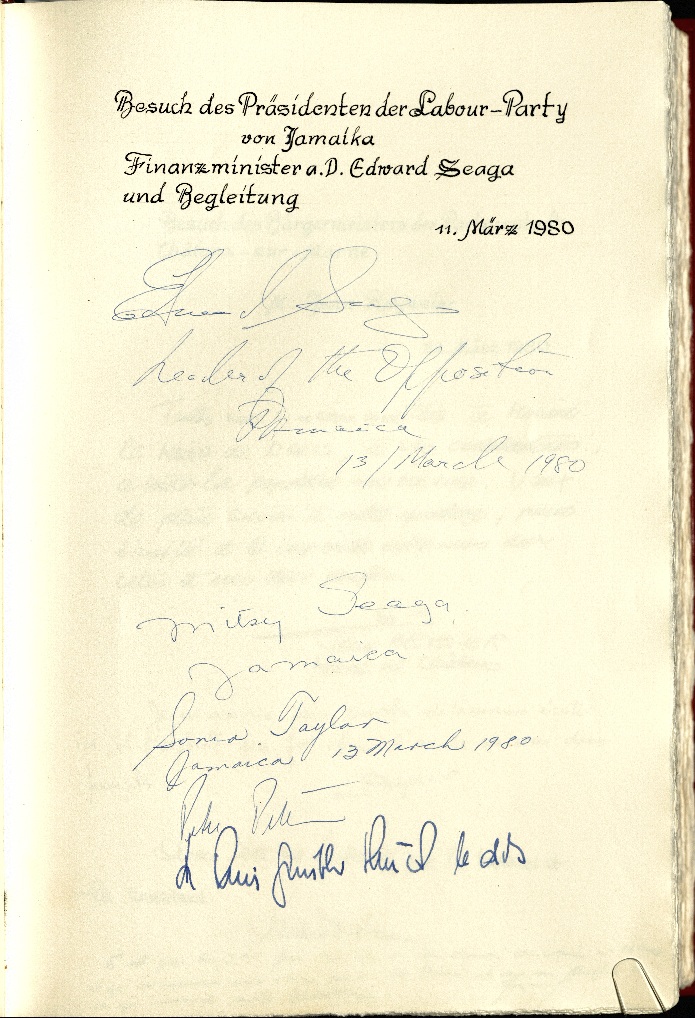 Besuch des Präsidenten der Labour-Party
von Jamaika
Finanzminister a.D. Edward Seaga
und Begleitung
11. März 1980
Edward Seaga
Leader of the Opposition
Jamaica
13/March 1980
Mitsy Seaga
Jamaica
Sonia Taylor
Jamaica 13 March 1980